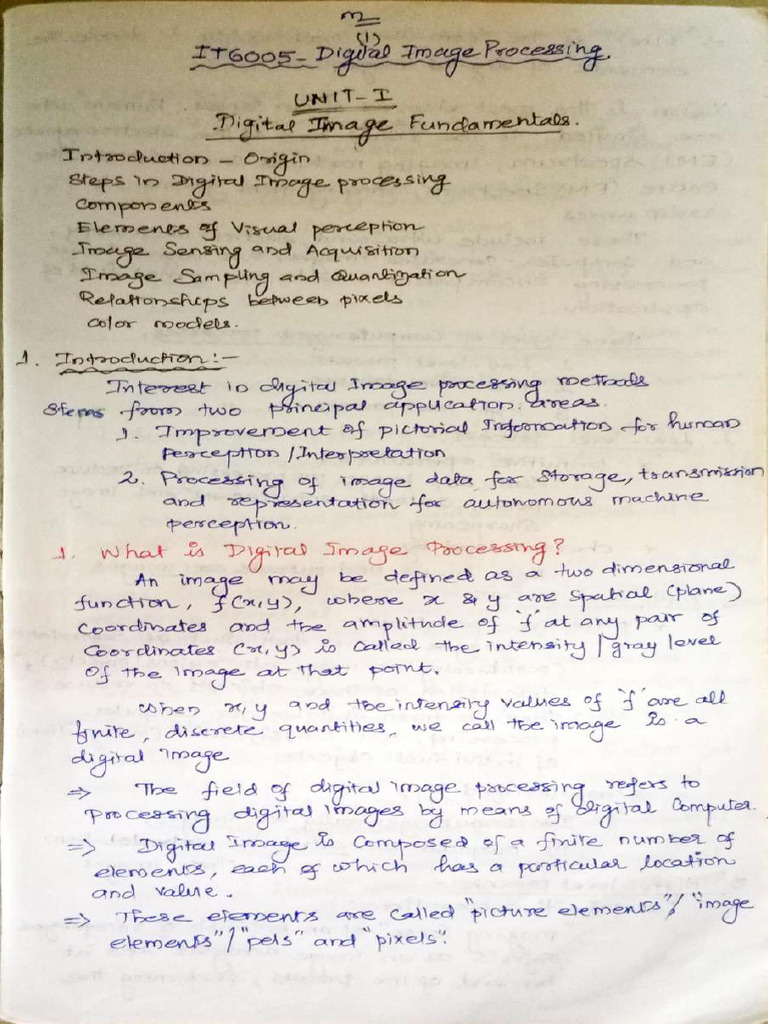 (1)
IT6005 - Digital Image Processing.
UNIT - I
Digital Image Fundamentals.
Introduction - Origin
Steps in Digital Image processing
Components
Elements of Visual perception
Image Sensing and Acquisition
Image Sampling and Quantization
Relationships between pixels
color models.
1. Introduction :-
Interest in digital Image processing methods
stems from two principal application areas.
1. Improvement of pictorial Information for human
perception / Interpretation
2. Processing of image data for storage, transmission
and representation for autonomous machine
perception.
1. What is Digital Image Processing?
An image may be defined as a two dimensional
function, f(x,y), where x & y are spatial (plane)
coordinates and the amplitude of 'f' at any pair of
coordinates (x,y) is called the intensity / gray level
of the image at that point.
When x,y and the intensity values of 'f' are all
finite, discrete quantities, we call the image is a
digital image
⇒ The field of digital image processing refers to
processing digital images by means of digital Computer.
⇒ Digital Image is composed of a finite number of
elements, each of which has a particular location
and value.
⇒ These elements are called "picture elements" / "image
elements" / "pels" and "pixels".